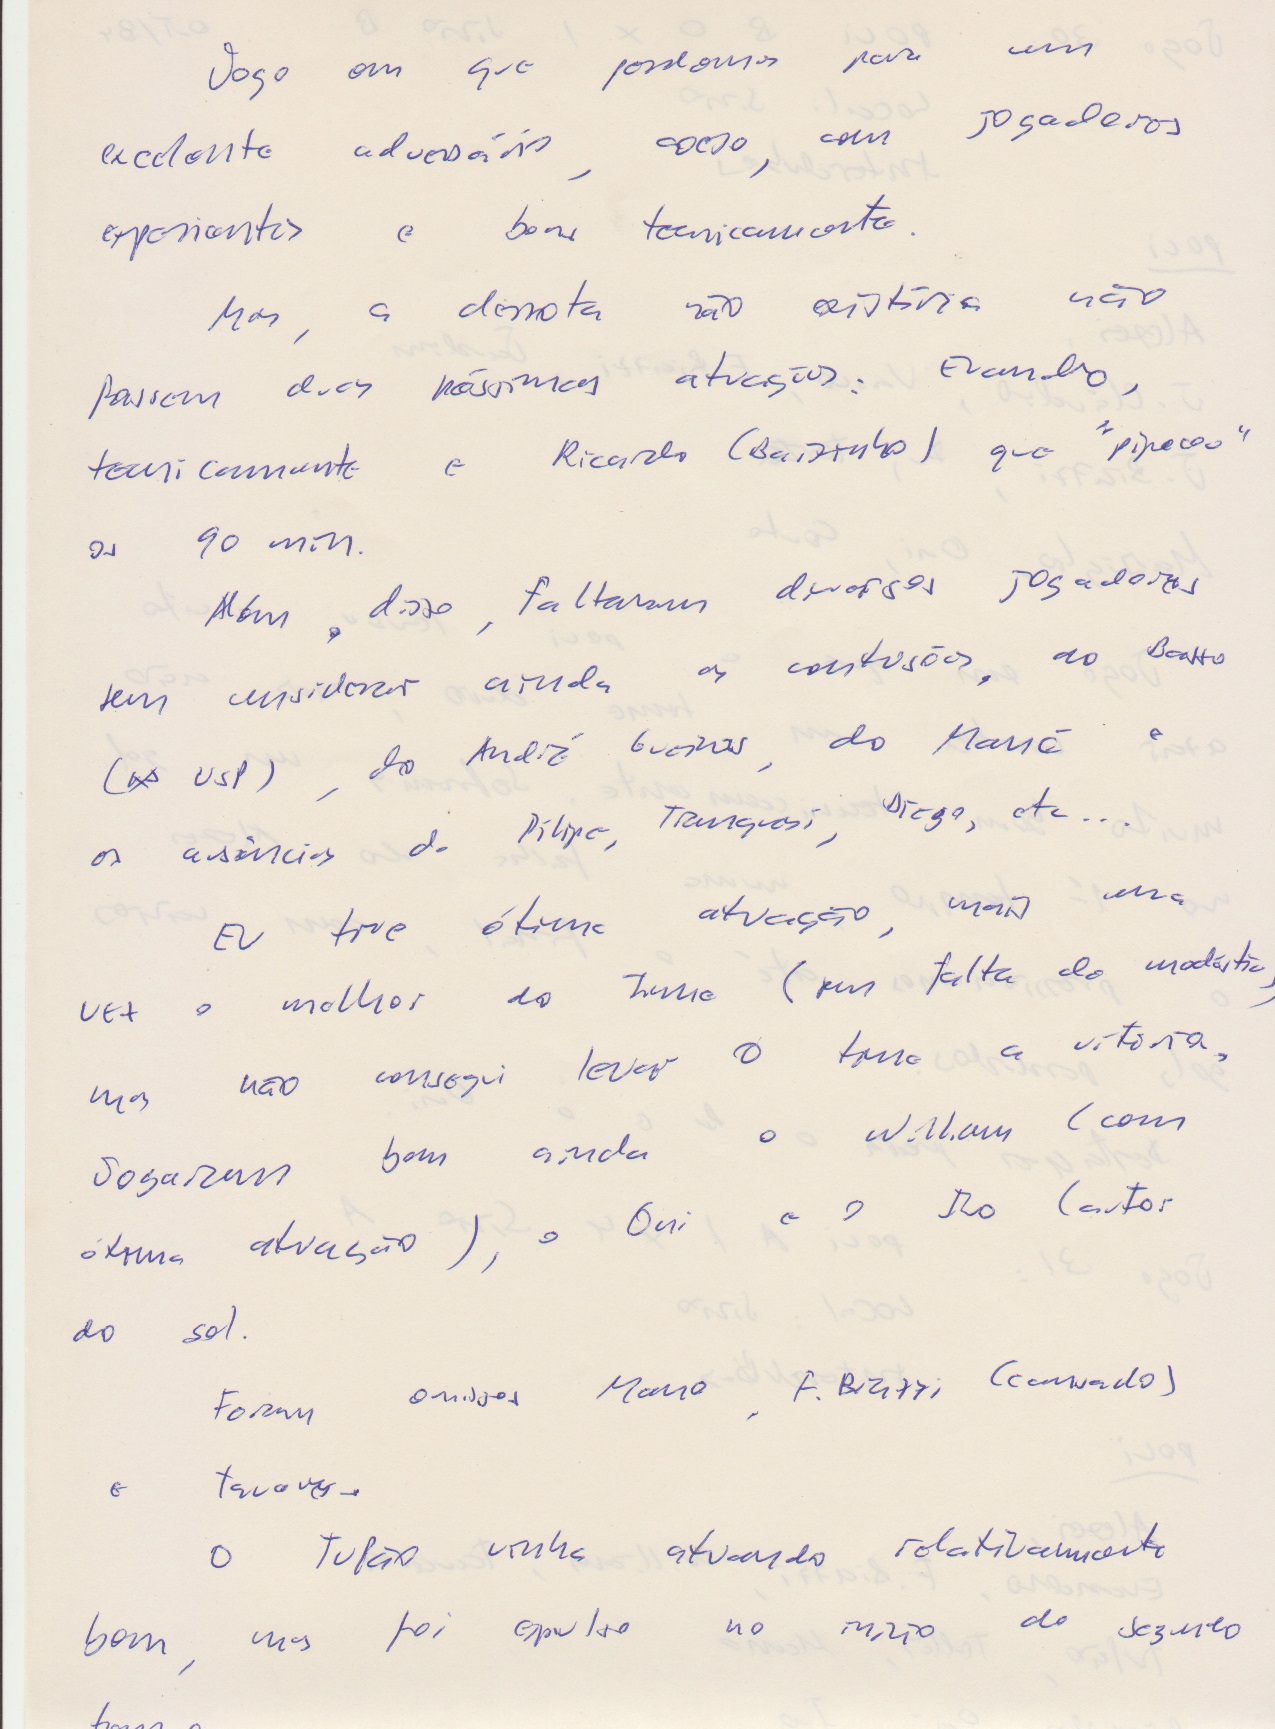 Jogo em que perdemos para um
excelente adversário, coeso, com jogadores
experientes e bons tecnicamente.
Mas, a derrota não existiria não
fossem duas péssimas atuações: Evandro,
tecnicamente e Ricardo (Bairrinho) que "pipocou"
os 90 min.
Além, disso, faltaram diversos jogadores
sem considerar ainda as contusões, do Basso
(USP), do André Gueiros, do Manã e
as ausências do Filipe, Tranquesi, Diego, etc...
Eu tive ótima atuação, mais uma
vez o melhor do time (sem falta de modéstia)
mas não consegui levar o time a vitória.
Jogaram bem ainda o William (com
ótima atuação), o Oni e o Iko (autor
do gol.
Foram omissos Mano, F. Biazzi (cansado)
e Tavares.
O Tufão vinha atuando relativamente
bem, mas foi expulso no início do segundo
tempo